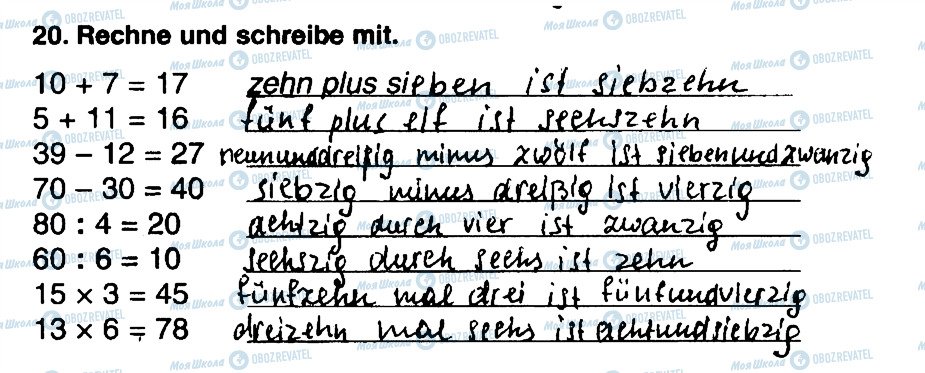 20. Rechne und schreibe mit.
10 + 7 = 17 zehn plus sieben ist siebzehn
5 + 11 = 16 fünf plus elf ist sechszehn
39 − 12 = 27 neununddreißig minus zwölf ist siebenundzwanzig
70 − 30 = 40 siebzig minus dreißig ist vierzig
80 : 4 = 20 achtzig durch vier ist zwanzig
60 : 6 = 10 sechszig durch sechs ist zehn
15 × 3 = 45 fünfzehn mal drei ist fünfundvierzig
13 × 6 = 78 dreizehn mal sechs ist achtundsiebzig